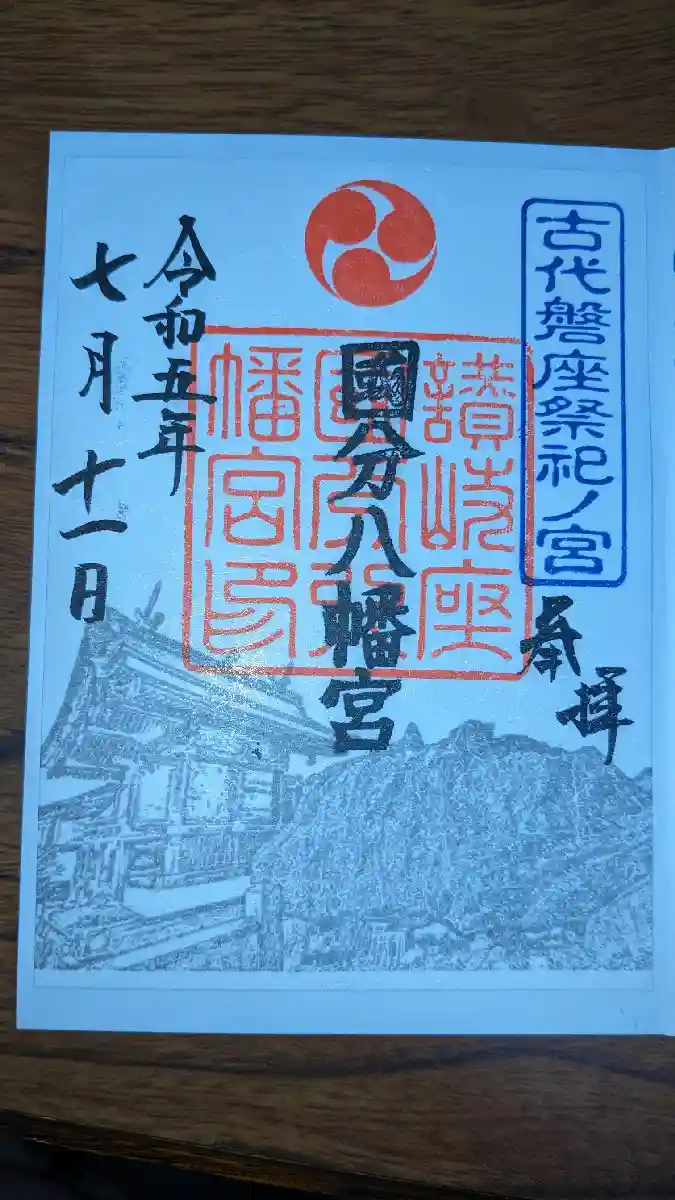 古代磐座祭祀ノ宮
奉拝
國分八幡宮
讃岐座
國分八
幡宮印
令和五年
七月十一日